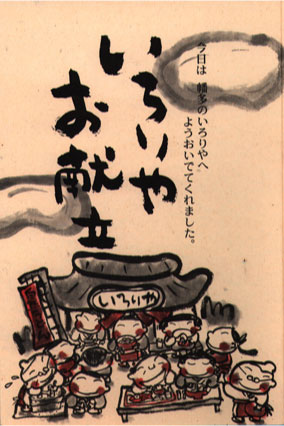 今日は 幡多のいろりやへ
ようおいでてくれました。
いろりや
お献立
いろりや